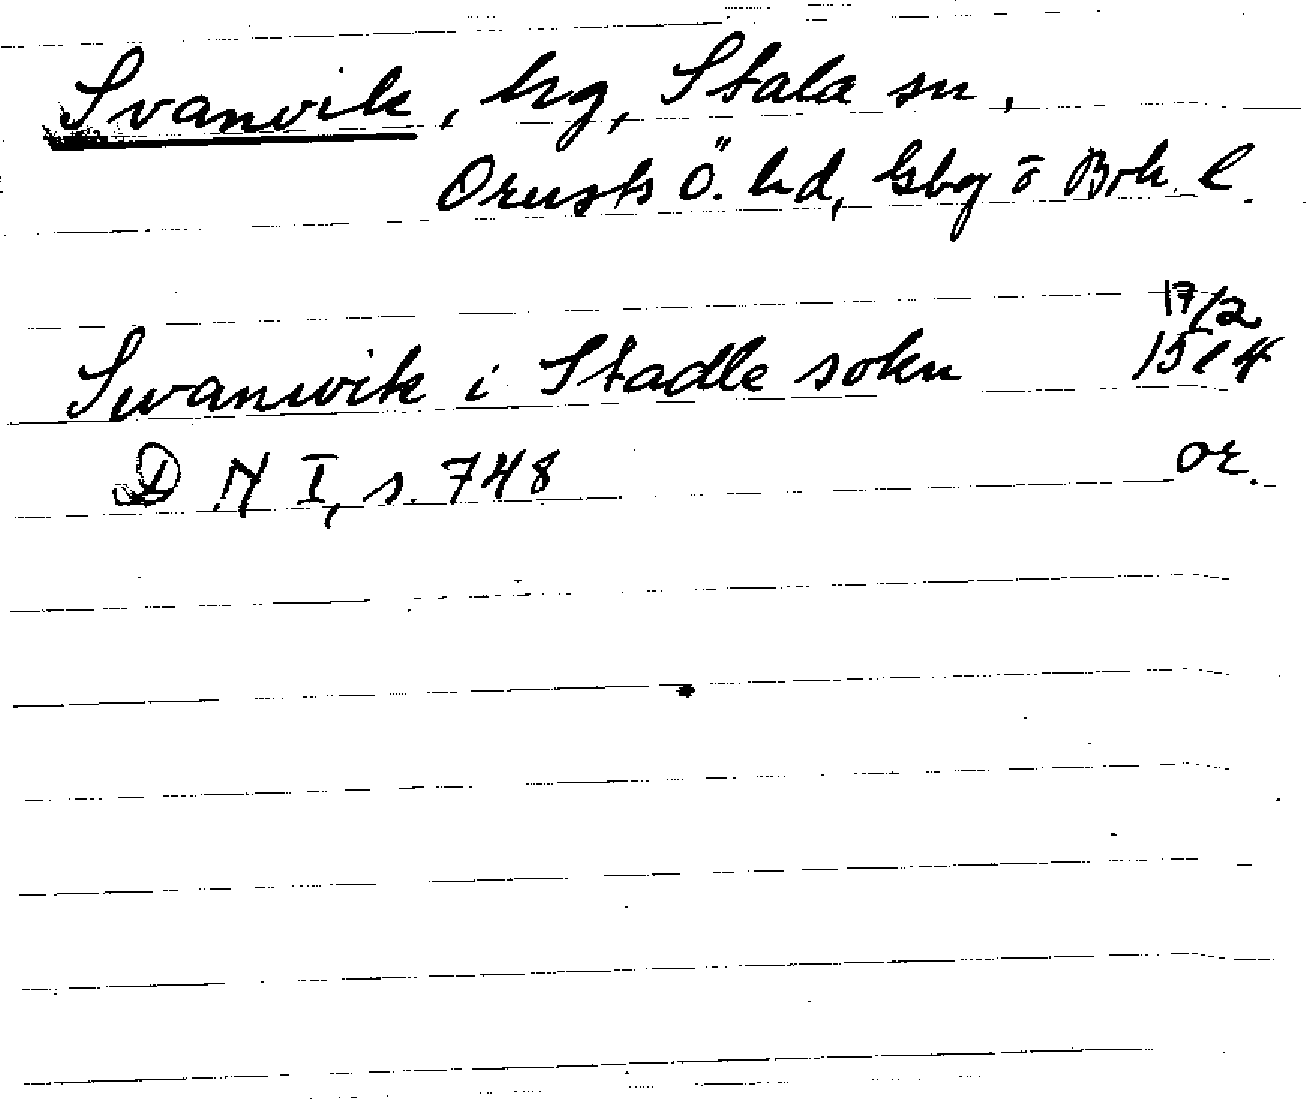 Svanvik, hg, Stala sn,
Orusts Ö. hd, Gbg o Boh. l.
17/2
Swanwik i Stadle sokn 1514
D N I, s. 748 or.